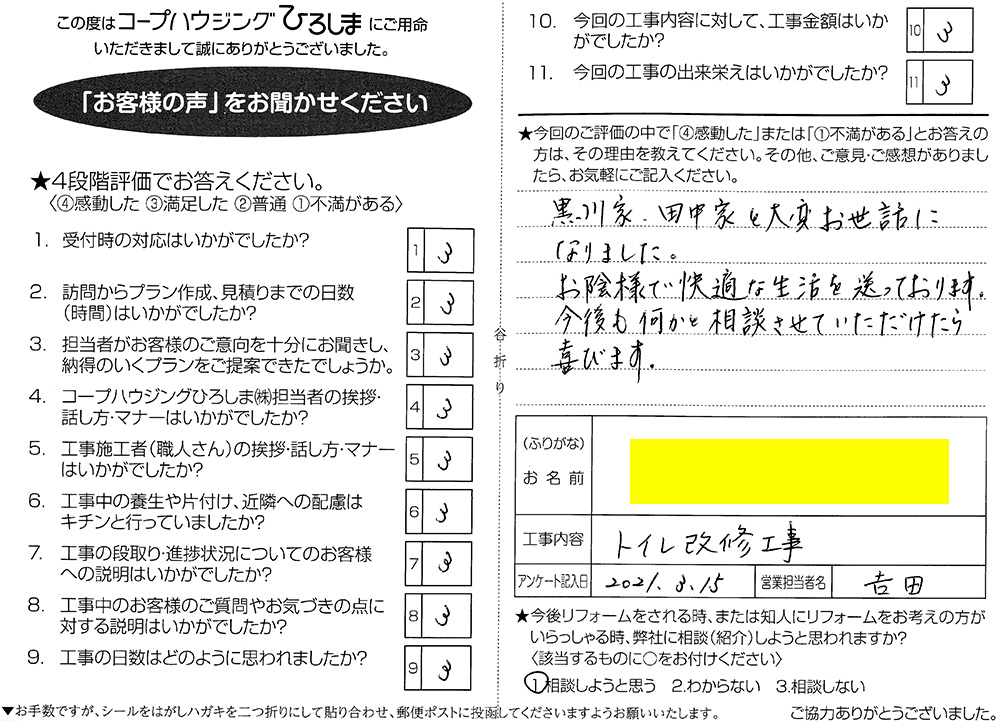 この度はコープハウジングひろしまにご用命
いただきまして誠にありがとうございました。
「お客様の声」をお聞かせください
★4段階評価でお答えください。
〈④感動した ③満足した ②普通 ①不満がある〉
1. 受付時の対応はいかがでしたか?
1 3
2. 訪問からプラン作成、見積りまでの日数
(時間)はいかがでしたか?
2 3
3. 担当者がお客様のご意向を十分にお聞きし、
納得のいくプランをご提案できたでしょうか。
3 3
4. コープハウジングひろしま㈱担当者の挨拶・
話し方・マナーはいかがでしたか?
4 3
5. 工事施工者(職人さん)の挨拶・話し方・マナー
はいかがでしたか?
5 3
6. 工事中の養生や片付け、近隣への配慮は
キチンと行っていましたか?
6 3
7. 工事の段取り・進捗状況についてのお客様
への説明はいかがでしたか?
7 3
8. 工事中のお客様のご質問やお気づきの点に
対する説明はいかがでしたか?
8 3
9. 工事の日数はどのように思われましたか?
9 3
▼お手数ですが、シールをはがしハガキを二つ折りにして貼り合わせ、郵便ポストに投函してくださいますようお願いいたします。
谷折り
10. 今回の工事内容に対して、工事金額はいか
がでしたか?
10 3
11. 今回の工事の出来栄えはいかがでしたか?
11 3
★今回のご評価の中で「④感動した」または「①不満がある」とお答えの
方は、その理由を教えてください。その他、ご意見・ご感想がありまし
たら、お気軽にご記入ください。
黒川家、田中家と大変お世話に
なりました。
お陰様で快適な生活を送っております。
今後も何かと相談させていただけたら
喜びます。
(ふりがな)
お名前
工事内容 トイレ改修工事
アンケート記入日 2021.3.15 営業担当者名 吉田
★今後リフォームをされる時、または知人にリフォームをお考えの方が
いらっしゃる時、弊社に相談(紹介)しようと思われますか?
〈該当するものに○をお付けください〉
1.相談しようと思う 2.わからない 3.相談しない
ご協力ありがとうございました。